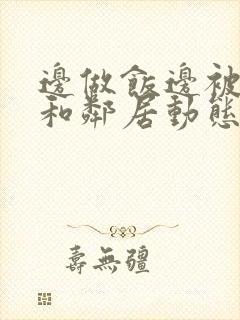 邊做飯邊被
和鄰居動態
壽無疆